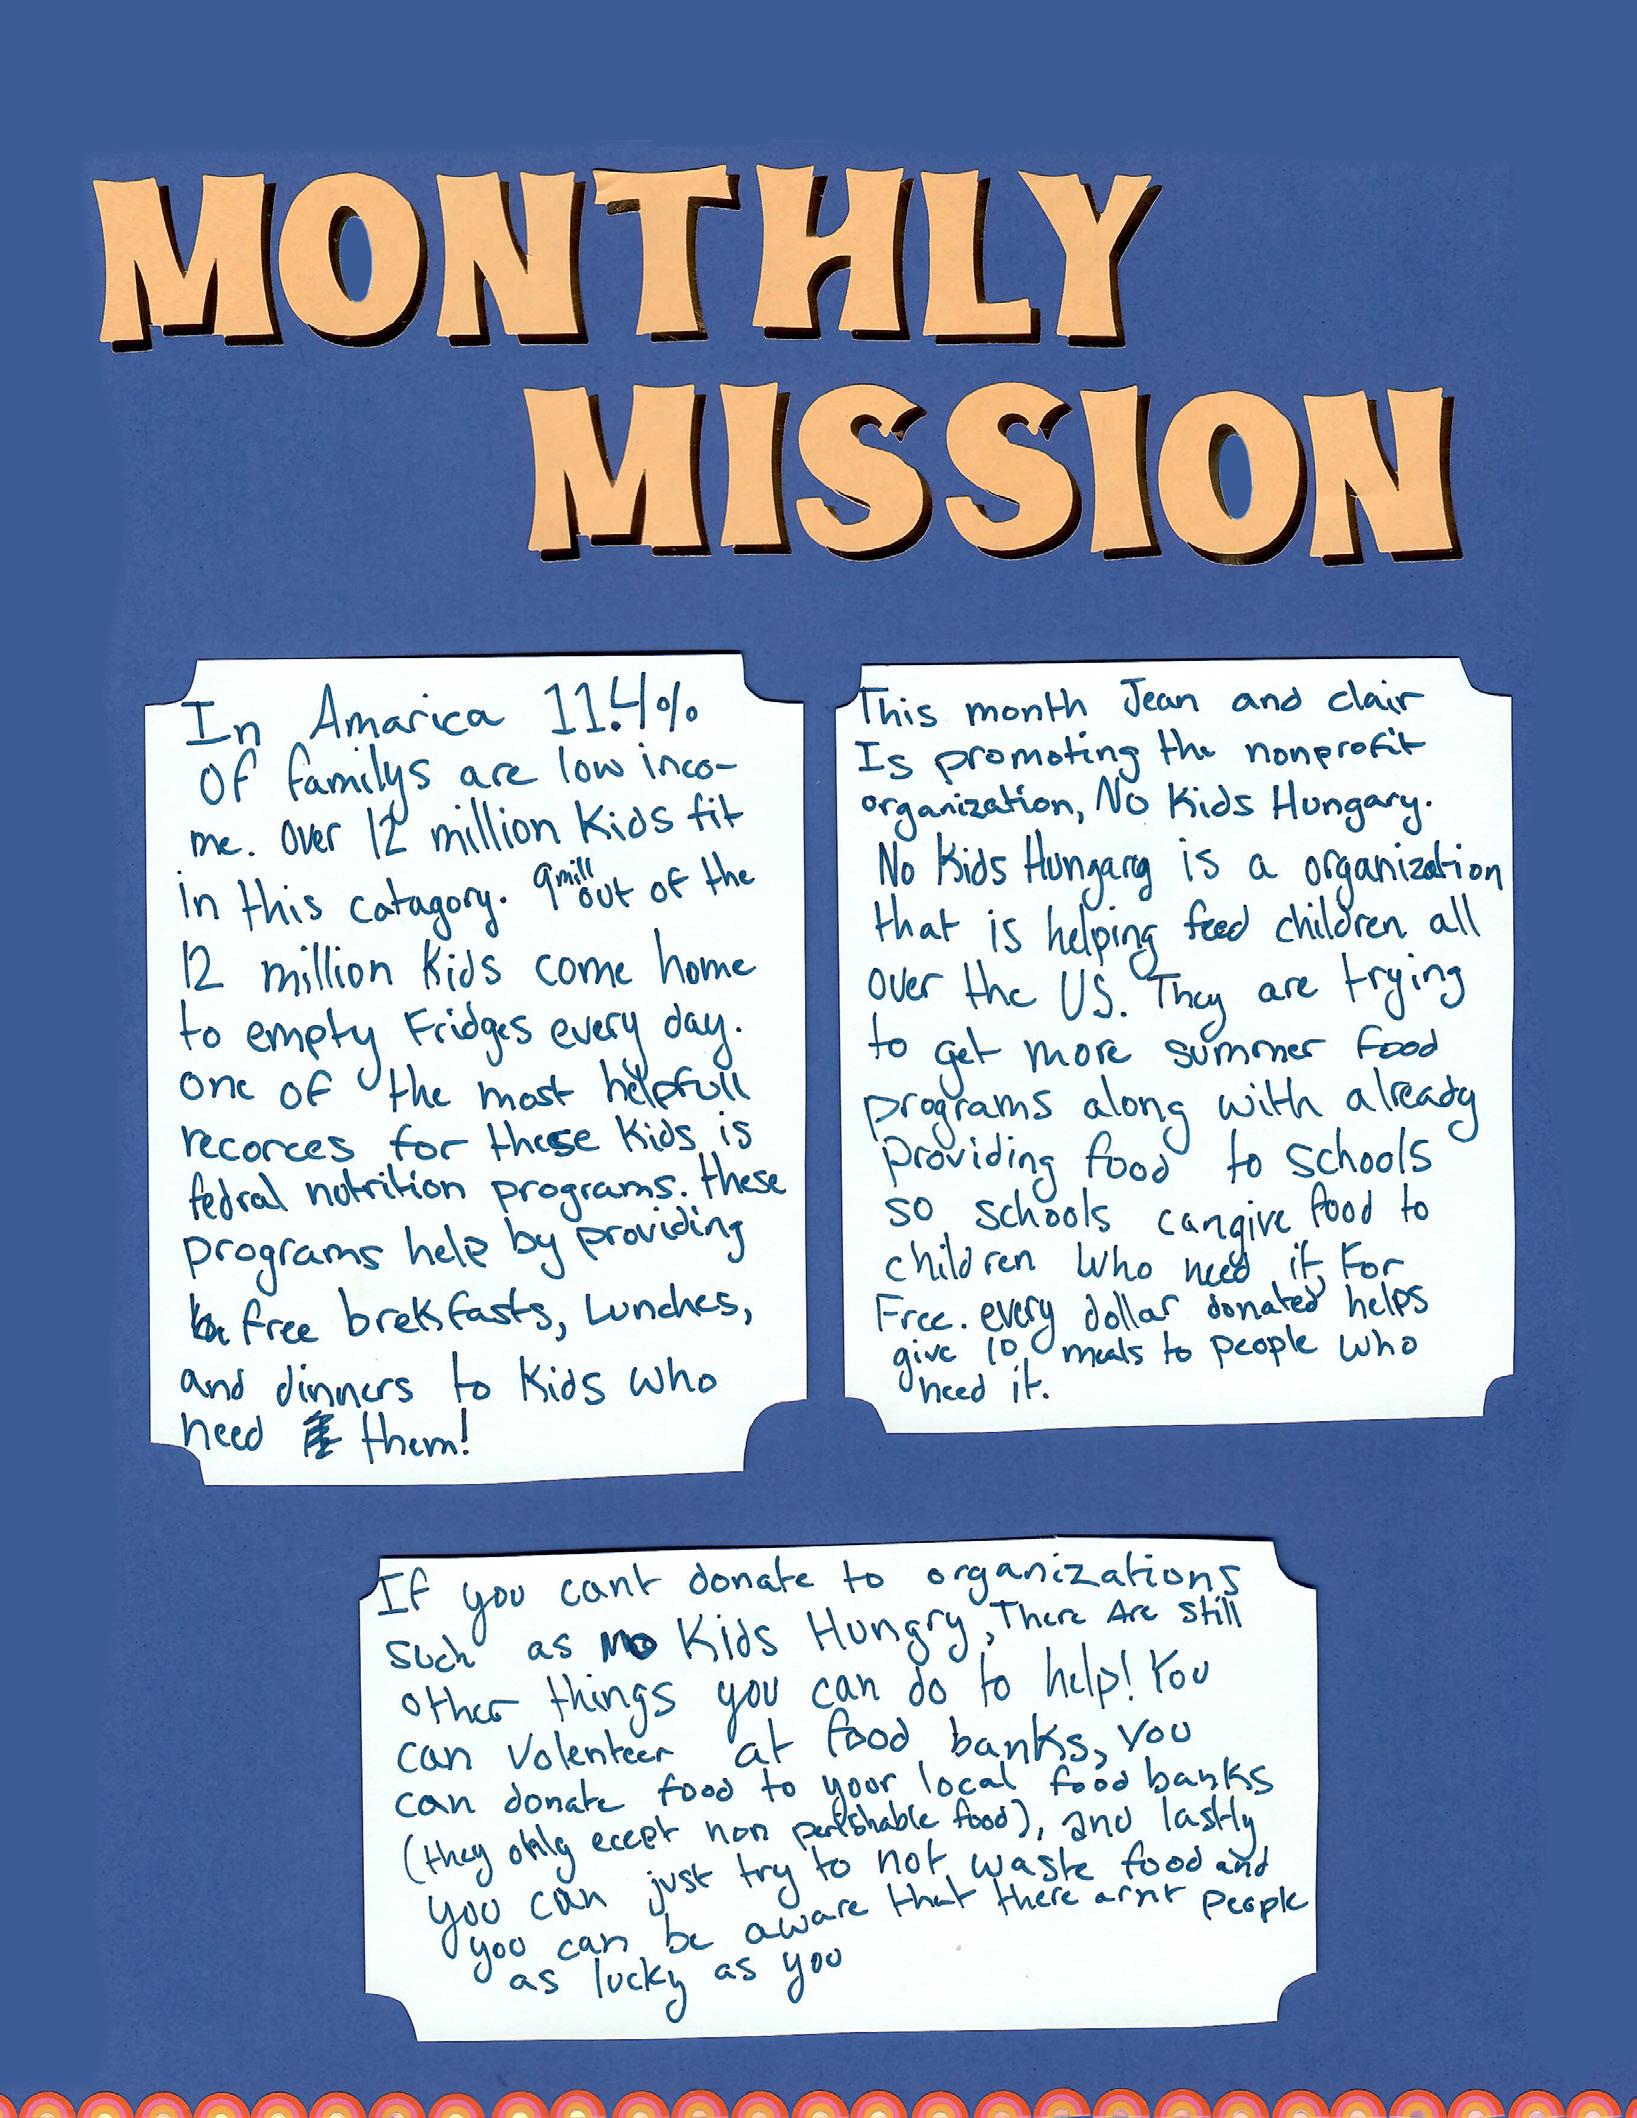 MONTHLY
MISSION
In Amarica 11.4%
of familys are low inco-
me. Over 12 million Kids fit
in this catagory. 9mill out of the
12 million Kids come home
to empty Fridges every day.
one of the most helpfull
recorces for these Kids is
fedral nutrition programs. these
programs help by providing
free brekfasts, Lunches,
and dinners to Kids who
need them!
This month Jean and clair
Is promoting the nonprofit
organization, No Kids Hungary.
No Kids Hungarg is a organization
that is helping feed children all
over the US. They are trying
to get more summer food
programs along with already
providing food to schools
so schools can give food to
children who need it For
Free. every dollar donated helps
give 10 meals to people who
need it.
If you cant donate to organizations
such as no Kids Hungry, There Are still
other things you can do to help! You
can Volenteer at food banks, you
can donate food to your local food banks
(they only ecept non perishable food), and lastly
you can just try to not waste food and
you can be aware that there arnt people
as lucky as you